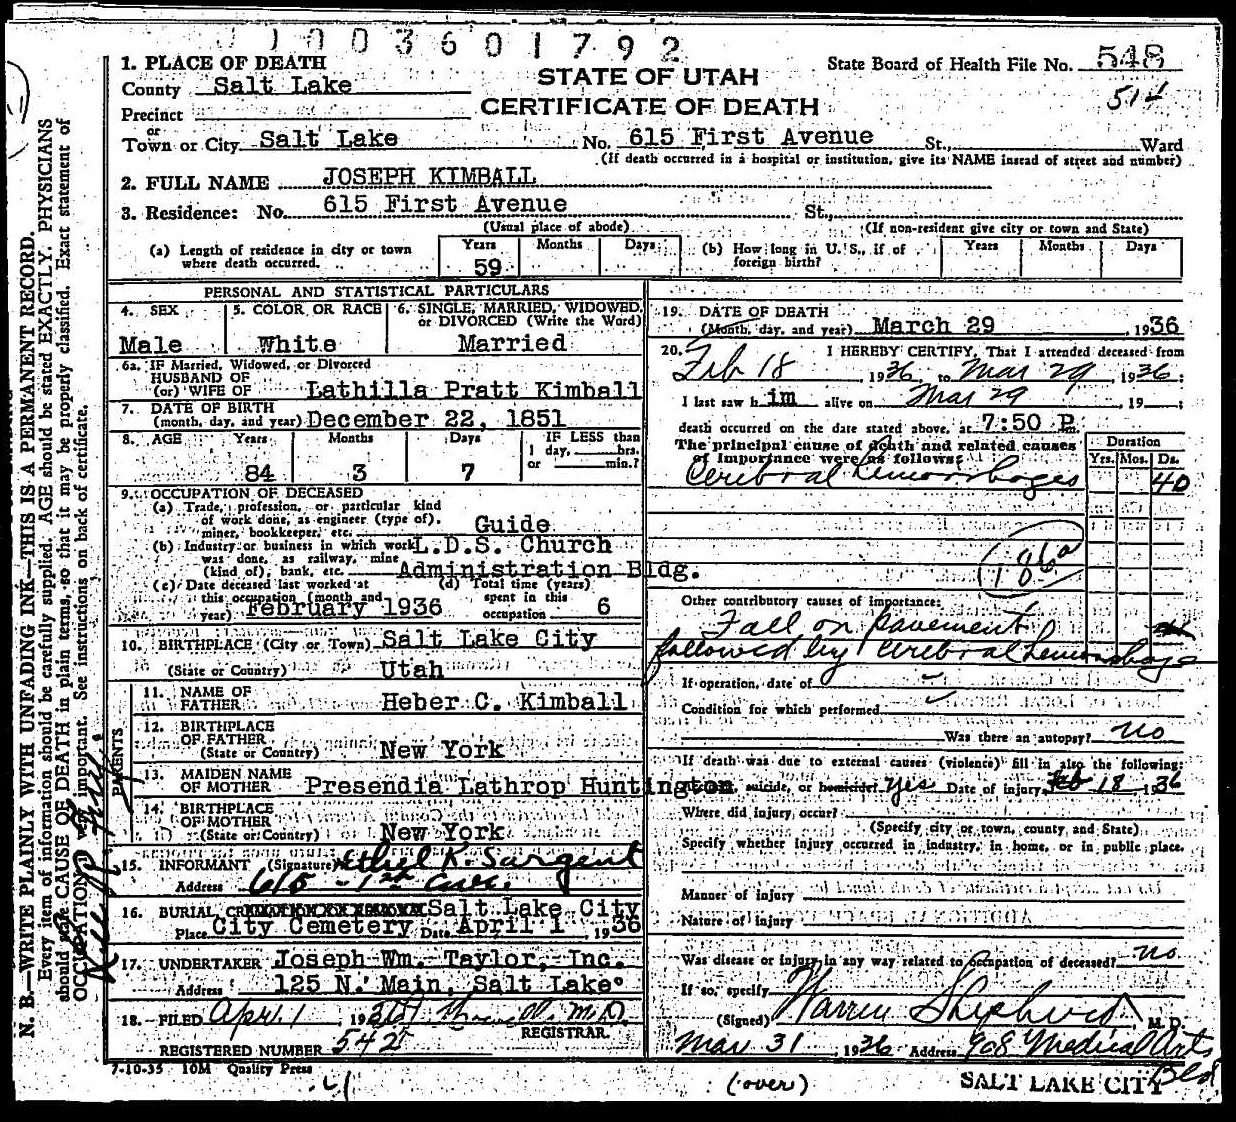 1003601792
1. PLACE OF DEATH
STATE OF UTAH
CERTIFICATE OF DEATH
State Board of Health File No. 548
514
County Salt Lake
Precinct
or
Town or City Salt Lake No. 615 First Avenue St., Ward
(If death occurred in a hospital or institution, give its NAME insead of street and number)
2. FULL NAME JOSEPH KIMBALL
3. Residence: No. 615 First Avenue St.,
(Usual place of abode) (If non-resident give city or town and State)
(a) Length of residence in city or town where death occurred. Years 59 Months Days
(b) How long in U. S., if of foreign birth? Years Months Days
PERSONAL AND STATISTICAL PARTICULARS
4. SEX Male
5. COLOR OR RACE White
6. SINGLE, MARRIED, WIDOWED, or DIVORCED (Write the Word) Married
6a. IF Married, Widowed, or Divorced
HUSBAND OF
(or) WIFE OF Lathilla Pratt Kimball
7. DATE OF BIRTH
(month, day, and year) December 22, 1851
8. AGE Years 84 Months 3 Days 7 IF LESS than 1 day, hrs. or min.?
9. OCCUPATION OF DECEASED
(a) Trade, profession, or particular kind
of work done, as engineer (type of).
miner, bookkeeper, etc. Guide
(b) Industry or business in which work L.D.S. Church
was done, as railway, mine
(kind of), bank, etc. Administration Bldg.
(c) Date deceased last worked at
this occupation (month and
year) February 1936
(d) Total time (years)
spent in this
occupation 6
10. BIRTHPLACE (City or Town) Salt Lake City
(State or Country) Utah
PARENTS
11. NAME OF
FATHER Heber C. Kimball
12. BIRTHPLACE
OF FATHER
(State or Country) New York
13. MAIDEN NAME
OF MOTHER Presendia Lathrop Huntington
14. BIRTHPLACE
OF MOTHER
(State or Country) New York
15. INFORMANT (Signature) Ethel K. Sargent
Address 615 - 1st Ave.
16. BURIAL Salt Lake City
Place City Cemetery Date April 1, 1936
17. UNDERTAKER Joseph Wm. Taylor, Inc.
Address 125 N. Main, Salt Lake
18. FILED April 1, 193 M.D.
REGISTRAR
REGISTERED NUMBER 542
7-10-35 10M Quality Press
19. DATE OF DEATH
(Month, day, and year) March 29, 1936
20. I HEREBY CERTIFY, That I attended deceased from
Feb 18, 1936 to Mar 29, 1936;
I last saw him alive on Mar 29, 19 ;
death occurred on the date stated above, at 7:50 P.m.
The principal cause of death and related causes
of importance were as follows:
Duration
Yrs. Mos. Ds.
Cerebral hemorrhages 40
186a
Other contributory causes of importance:
Fall on pavement
followed by cerebral hemorrhage
If operation, date of
Condition for which performed
Was there an autopsy? no
If death was due to external causes (violence) fill in also the following:
suicide, or homicide? Yes Date of injury Feb 18, 1936
Where did injury occur?
(Specify city or town, county and State)
Specify whether injury occurred in industry, in home, or in public place.
Manner of injury
Nature of injury
Was disease or injury in any way related to occupation of deceased? no
If so, specify
(Signed) Warren Shepherd, M.D.
Mar 31, 1936 Address 908 Medical Arts Bld
(over)
SALT LAKE CITY
N. B.—WRITE PLAINLY WITH UNFADING INK—THIS IS A PERMANENT RECORD.
Every item of information should be carefully supplied. AGE should be stated EXACTLY. PHYSICIANS
should state CAUSE OF DEATH in plain terms, so that it may be properly classified. Exact statement of
OCCUPATION is very important. See instructions on back of certificate.